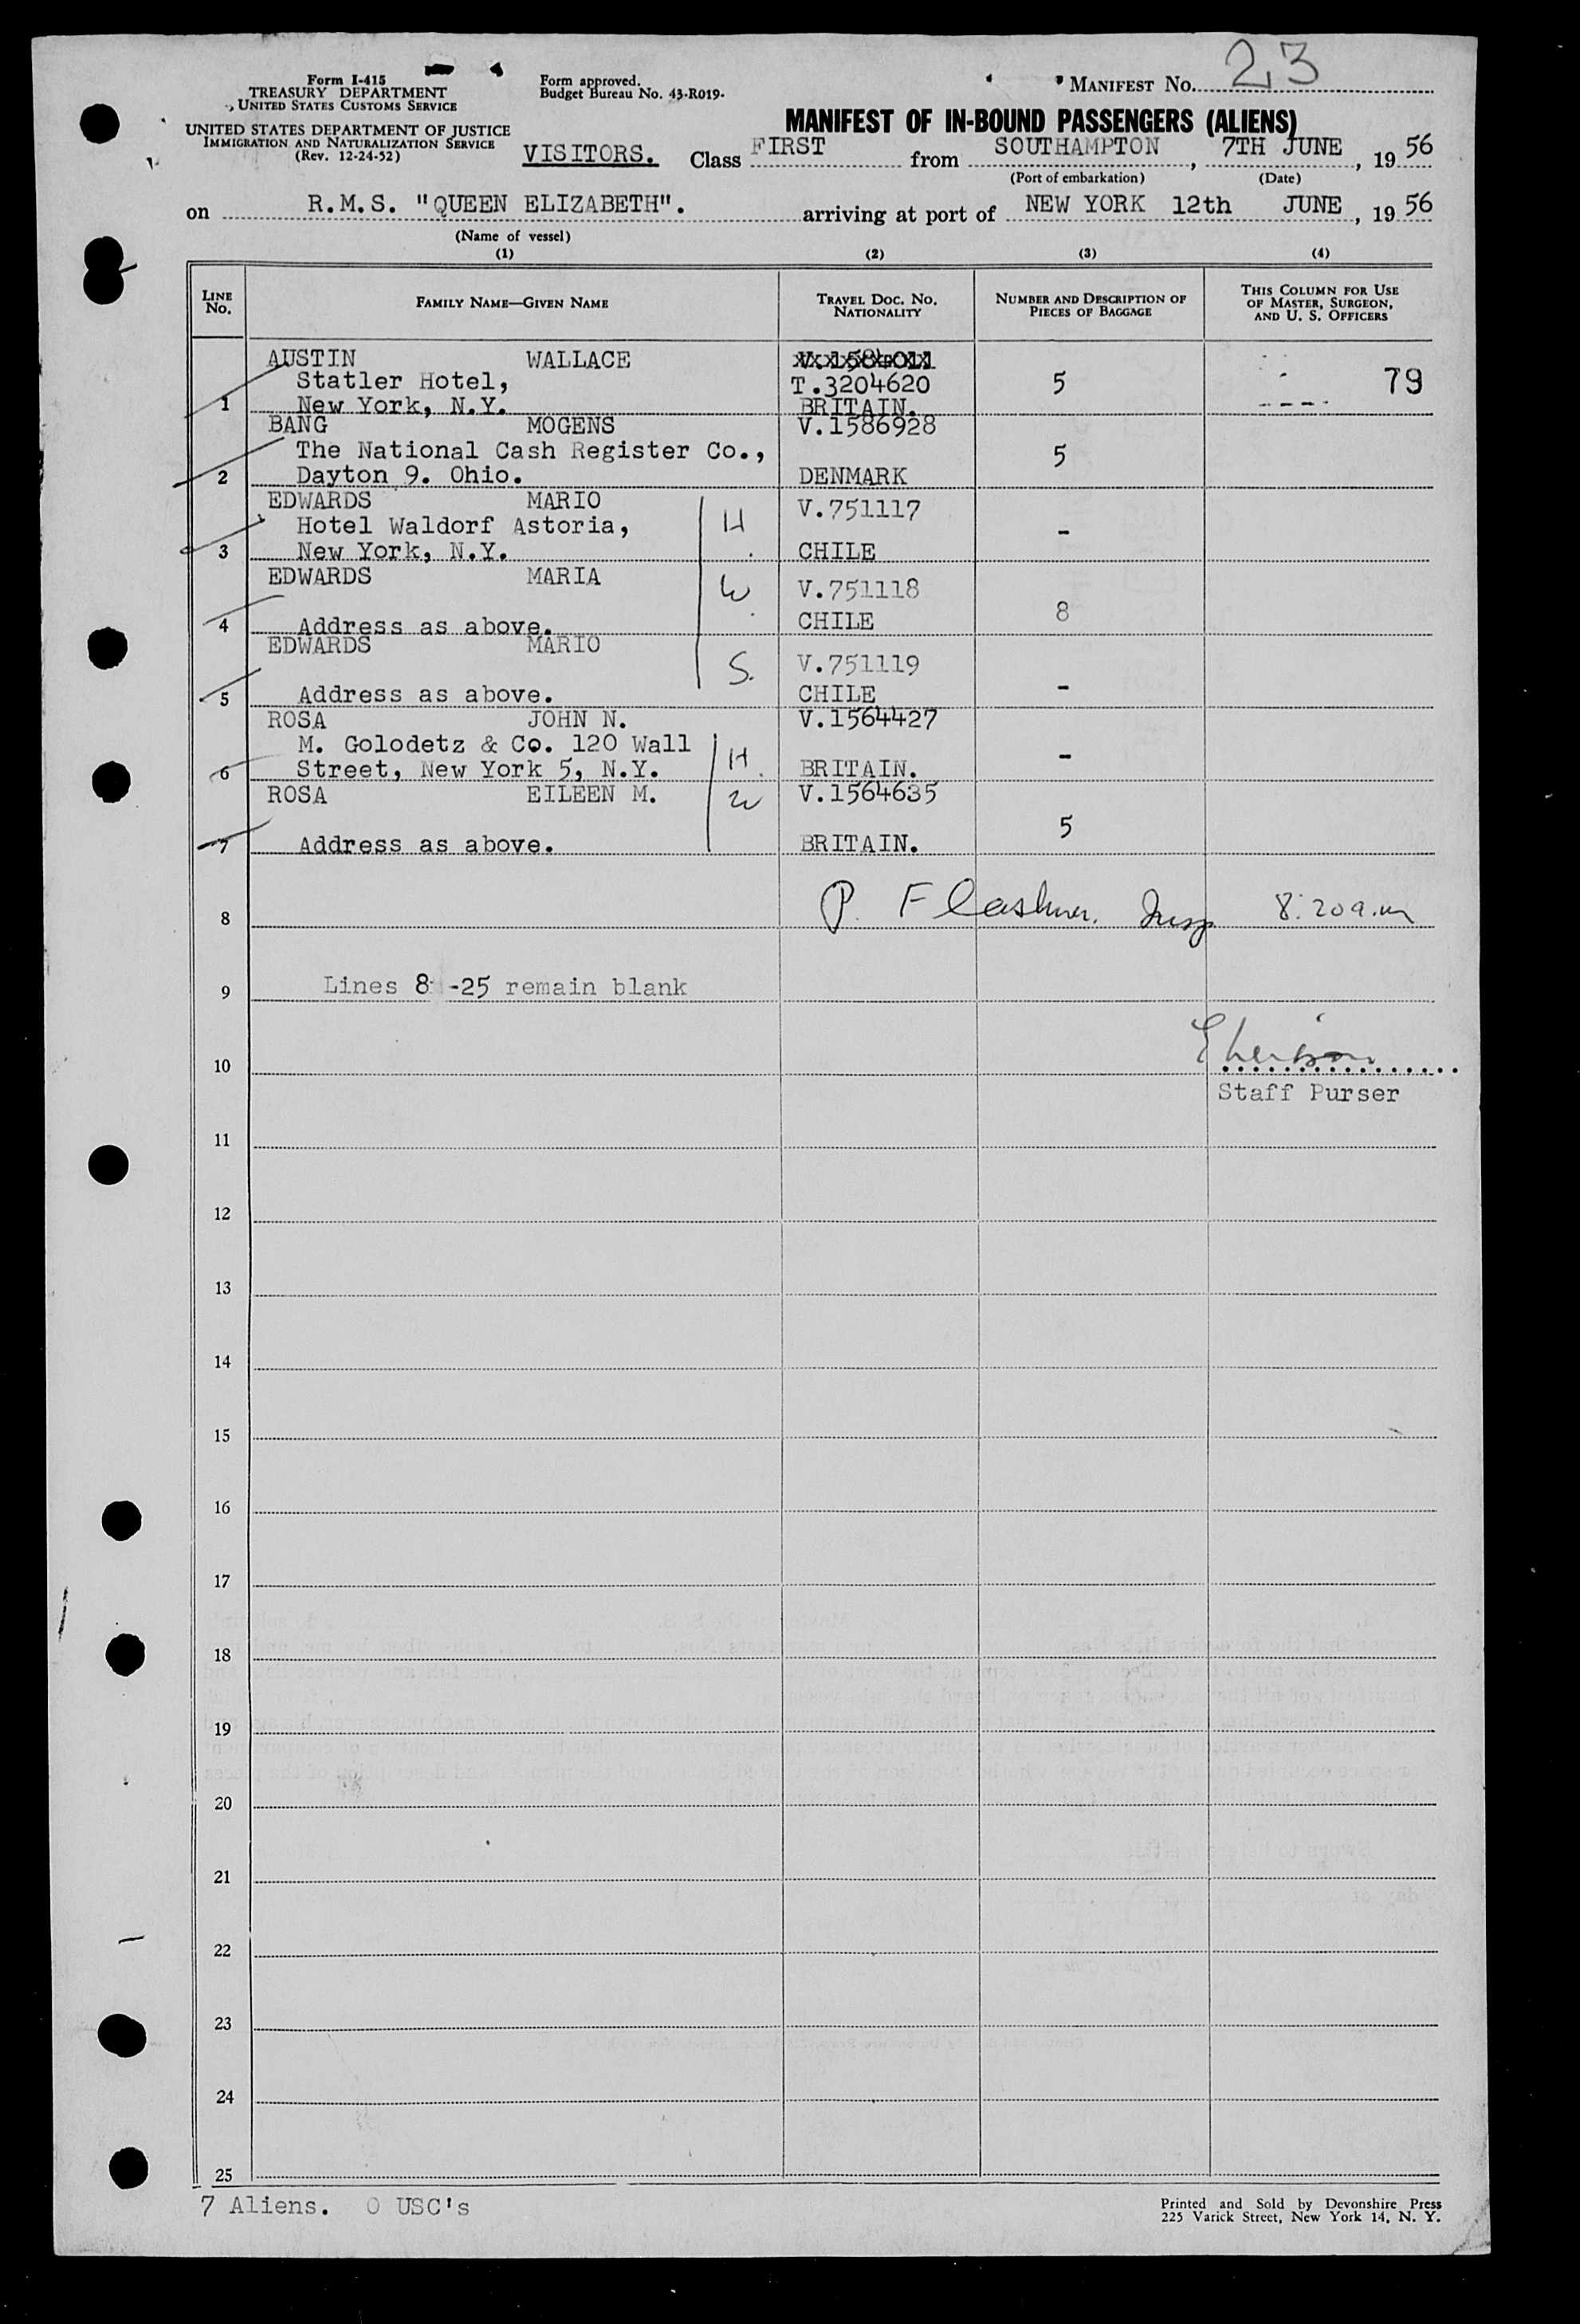 Form I-415
TREASURY DEPARTMENT
UNITED STATES CUSTOMS SERVICE
UNITED STATES DEPARTMENT OF JUSTICE
IMMIGRATION AND NATURALIZATION SERVICE
(Rev. 12-24-52)
Form approved.
Budget Bureau No. 43-R019.
MANIFEST No. 23
MANIFEST OF IN-BOUND PASSENGERS (ALIENS)
VISITORS. Class FIRST from SOUTHAMPTON, 7TH JUNE, 19 56
(Port of embarkation) (Date)
on R.M.S. "QUEEN ELIZABETH". arriving at port of NEW YORK 12th JUNE, 19 56
(Name of vessel)
(1) (2) (3) (4)
LINE No. FAMILY NAME—GIVEN NAME TRAVEL DOC. NO. NATIONALITY NUMBER AND DESCRIPTION OF PIECES OF BAGGAGE THIS COLUMN FOR USE OF MASTER, SURGEON, AND U. S. OFFICERS
AUSTIN WALLACE V.1584011
Statler Hotel, T.3204620 5 79
1 New York, N.Y. BRITAIN.
BANG MOGENS V.1586928
The National Cash Register Co., 5
2 Dayton 9. Ohio. DENMARK
EDWARDS MARIO V.751117
Hotel Waldorf Astoria, H -
3 New York, N.Y. CHILE
EDWARDS MARIA W V.751118
8
4 Address as above. CHILE
EDWARDS MARIO
S. V.751119
5 Address as above. CHILE -
ROSA JOHN N. V.1564427
M. Golodetz & Co. 120 Wall H. -
6 Street, New York 5, N.Y. BRITAIN.
ROSA EILEEN M. W V.1564635
5
7 Address as above. BRITAIN.
8 P. Flashner. Insp 8:20 a.m
9 Lines 8 -25 remain blank
10
Staff Purser
11
12
13
14
15
16
17
18
19
20
21
22
23
24
25
7 Aliens. 0 USC's
Printed and Sold by Devonshire Press
225 Varick Street, New York 14, N. Y.